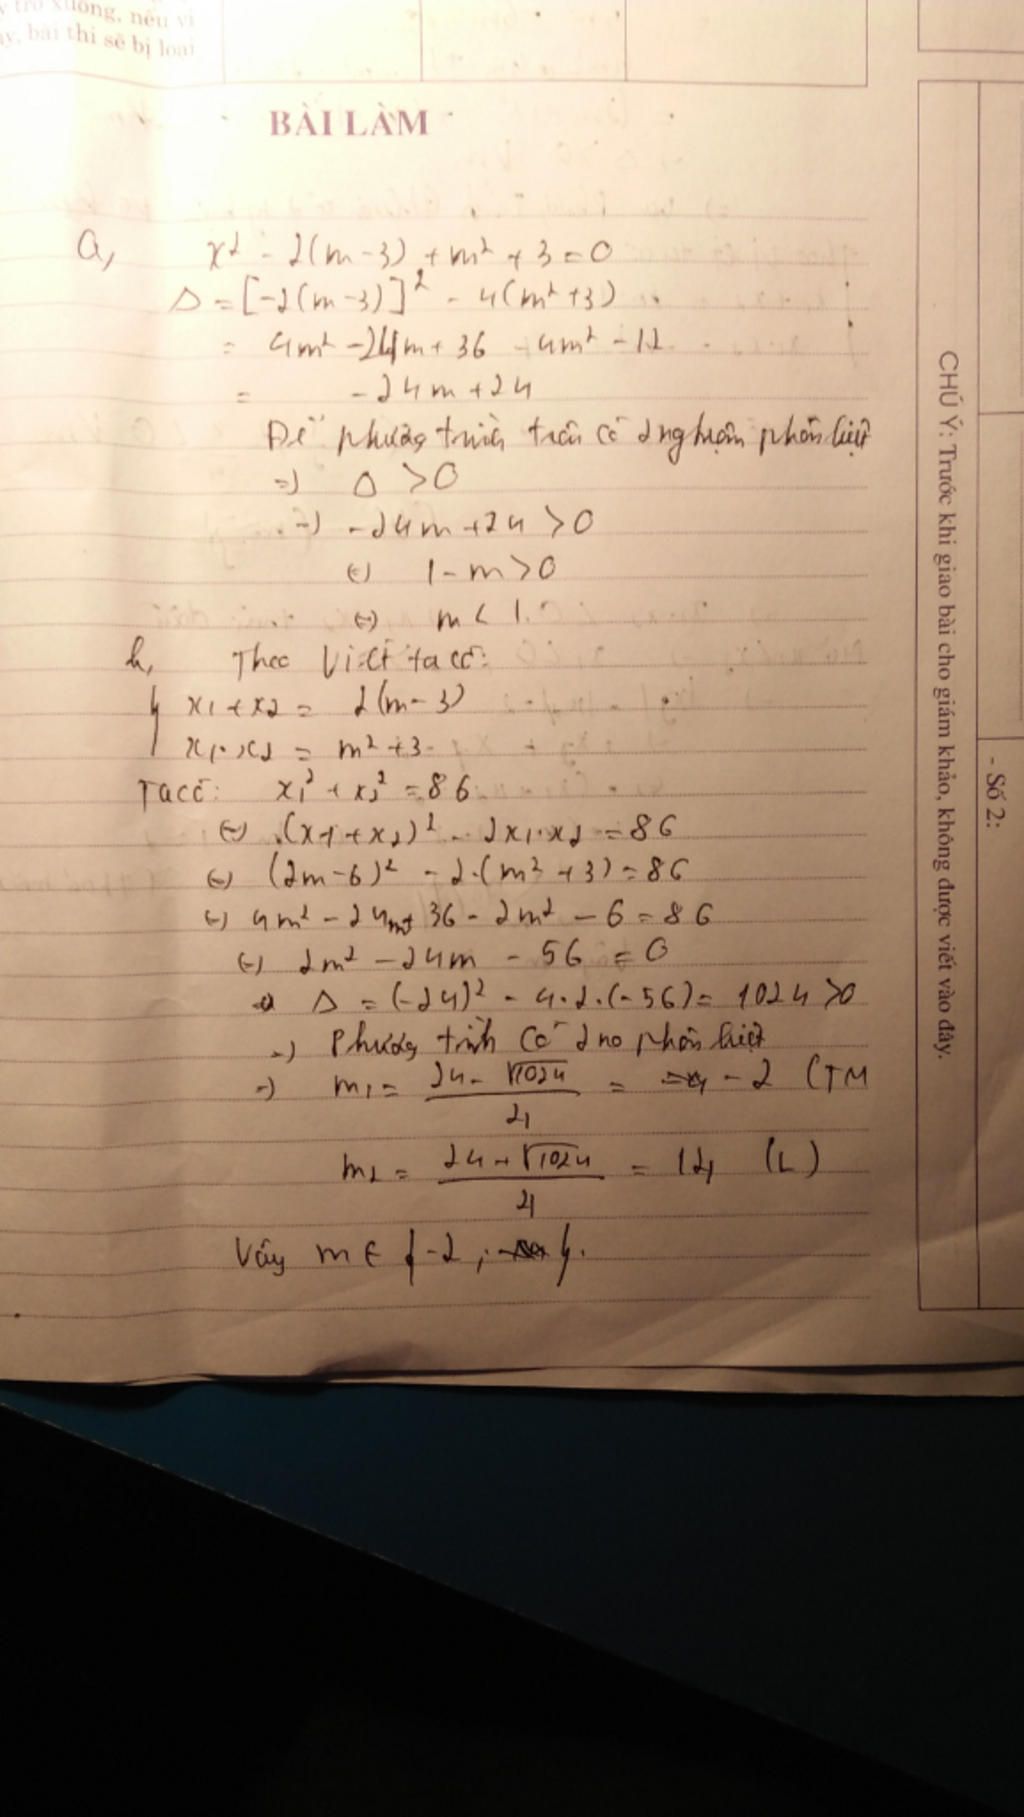 trở xuống, nếu vi
bài thi sẽ bị loại
BÀI LÀM
a, x² - 2(m-3) + m² + 3 = 0
Δ = [-2(m-3)]² - 4(m²+3)
= 4m² - 24m + 36 - 4m² - 12
= -24m + 24
Để phương trình trên có 2 nghiệm phân biệt
=> Δ > 0
=> -24m + 24 > 0
<=> 1 - m > 0
<=> m < 1.
b, Theo Viét ta có:
{ x₁ + x₂ = 2(m-3)
x₁.x₂ = m² + 3
Ta có: x₁² + x₂² = 86
<=> (x₁ + x₂)² - 2x₁.x₂ = 86
<=> (2m-6)² - 2.(m² + 3) = 86
<=> 4m² - 24m + 36 - 2m² - 6 = 86
<=> 2m² - 24m - 56 = 0
Δ = (-24)² - 4.2.(-56) = 1024 > 0
=> Phương trình có 2 no phân biệt
=> m₁ = (24 - √1024)/4 = -2 (TM
m₂ = (24 + √1024)/4 = 14 (L)
Vậy m ∈ {-2; }.
CHÚ Ý: Trước khi giao bài cho giám khảo, không được viết vào đây.
- Số 2: